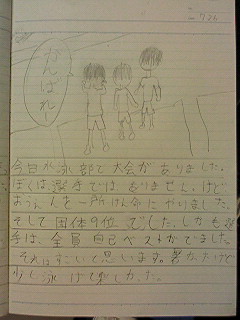 7/26
がんばれー
今日水泳部で大会がありました。
ぼくは選手ではありません。けど
おうえんを一所けん命にやりました。
そして団体9位でした。しかも選
手は、全員自己ベストがでました。
それはすごいて思います。暑かったけど
少し泳げて楽しかった。